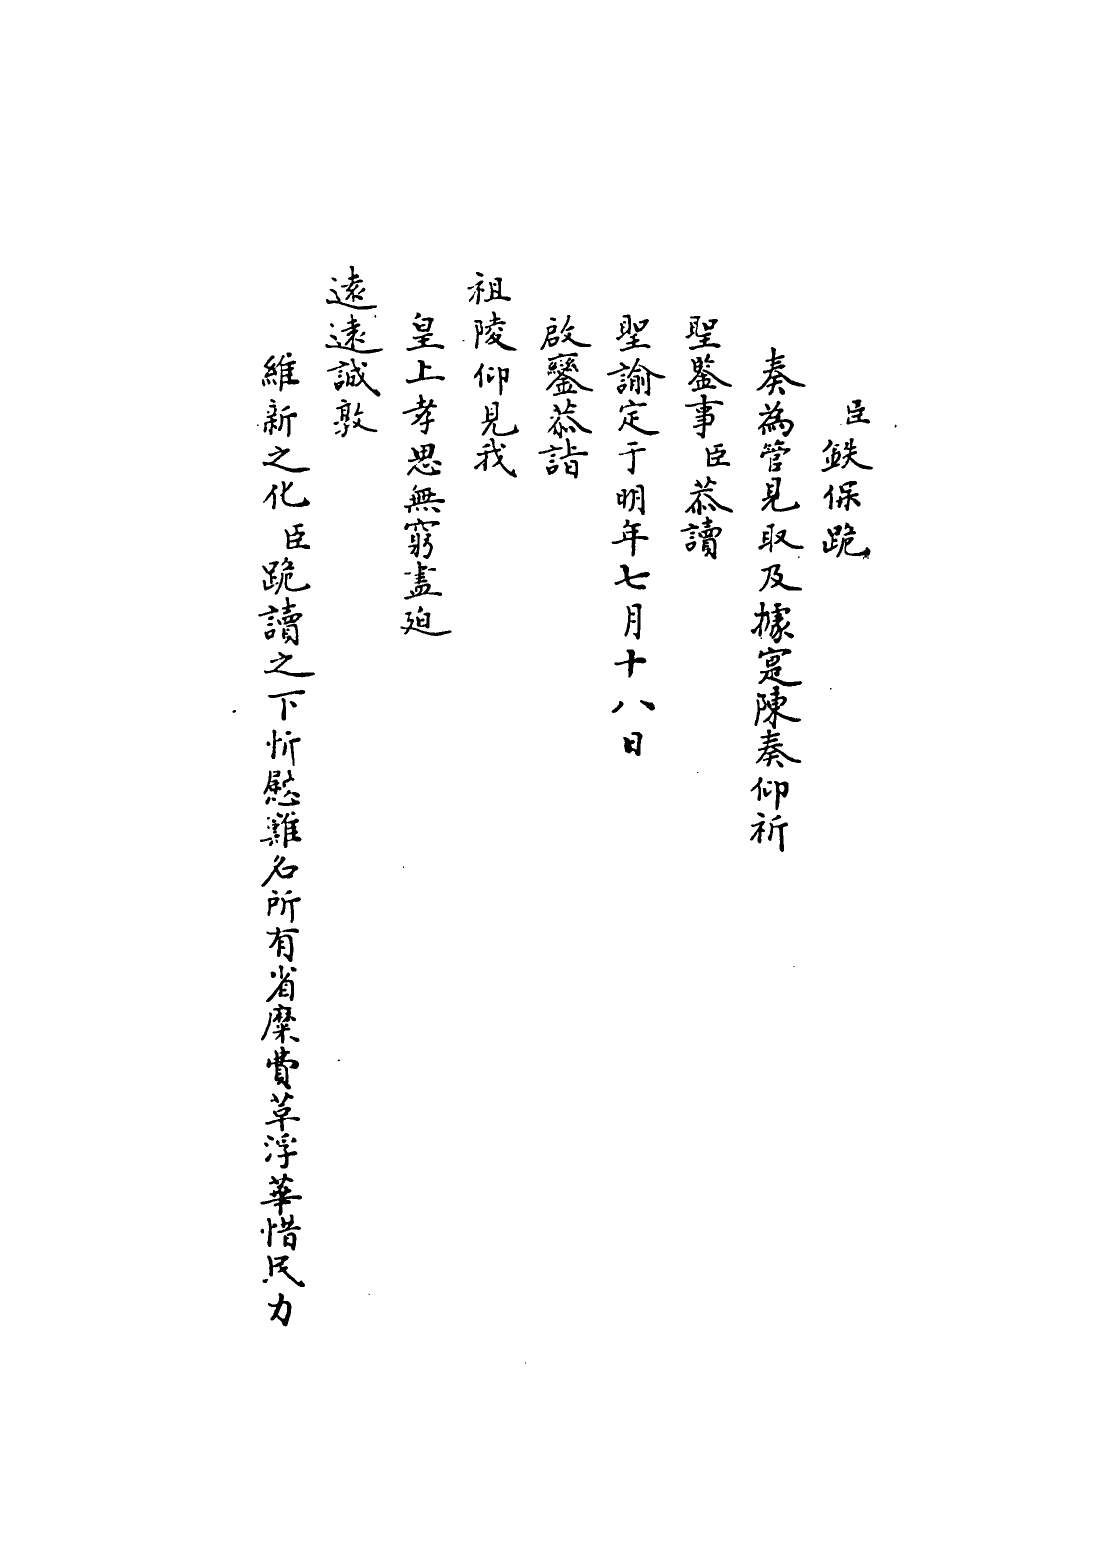 臣鉄保跪
奏為管見取及據寔陳奏仰祈
聖鑒事臣恭讀
聖諭定于明年七月十八日
啟鑾恭詣
祖陵仰見我
皇上孝思無窮盡廹
遠遠誠敦
維新之化臣跪讀之下忻慰難名所有省糜費草浮華惜民力